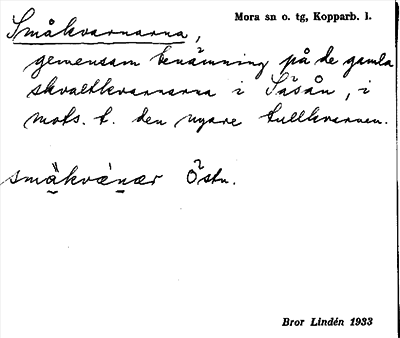 Mora sn o. tg, Kopparb. l.
Småkvarnarna,
gemensam benämning på de gamla
skvaltkvarnarna i Säsån, i
mots. t. den nyare tullkvarnen.
Östn.
Bror Lindén 1933